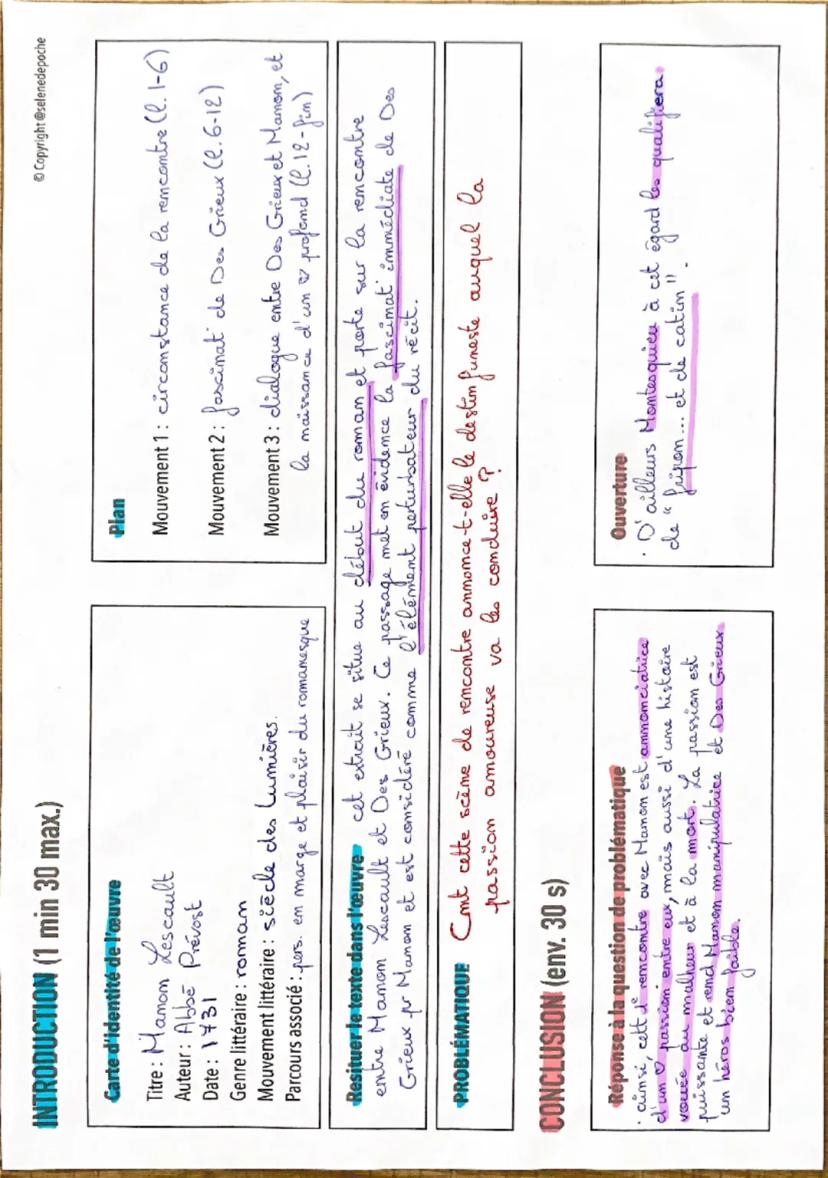 © Copyright @selenedepoche
INTRODUCTION (1 min 30 max.)
Carte d'identité de l'œuvre
Titre : Manon Lescault
Auteur : Abbé Prévost
Date : 1731
Genre littéraire : roman
Mouvement littéraire : siècle des Lumières.
Parcours associé : pers. en marge et plaisir du romanesque
Plan
Mouvement 1 : circonstance de la rencontre (l. 1-6)
Mouvement 2 : fascinat° de Des Grieux (l. 6-12)
Mouvement 3 : dialogue entre Des Grieux et Manon, et
la naissance d'un ♡ profond (l. 12-fin)
Resituer le texte dans l'œuvre cet extrait se situe au début du roman et porte sur la rencontre
entre Manon Lescault et Des Grieux. Ce passage met en évidence la fascinat° immédiate de Des
Grieux pr Manon et est considéré comme l'élément perturbateur du récit.
PROBLÉMATIQUE Cmt cette scène de rencontre annonce-t-elle le destin funeste auquel la
passion amoureuse va les conduire ?
CONCLUSION (env. 30 s)
Réponse à la question de problématique
· ainsi, cette rencontre avec Manon est annonciatrice
d'un ♡ passion entre eux, mais aussi d'une histoire
vouée au malheur et à la mort. La passion est
puissante et rend Manon manipulatrice et Des Grieux
un héros bien faible.
Ouverture
· D'ailleurs Montesquieu à cet égard les qualifiera
de "fripon ... et de catin".